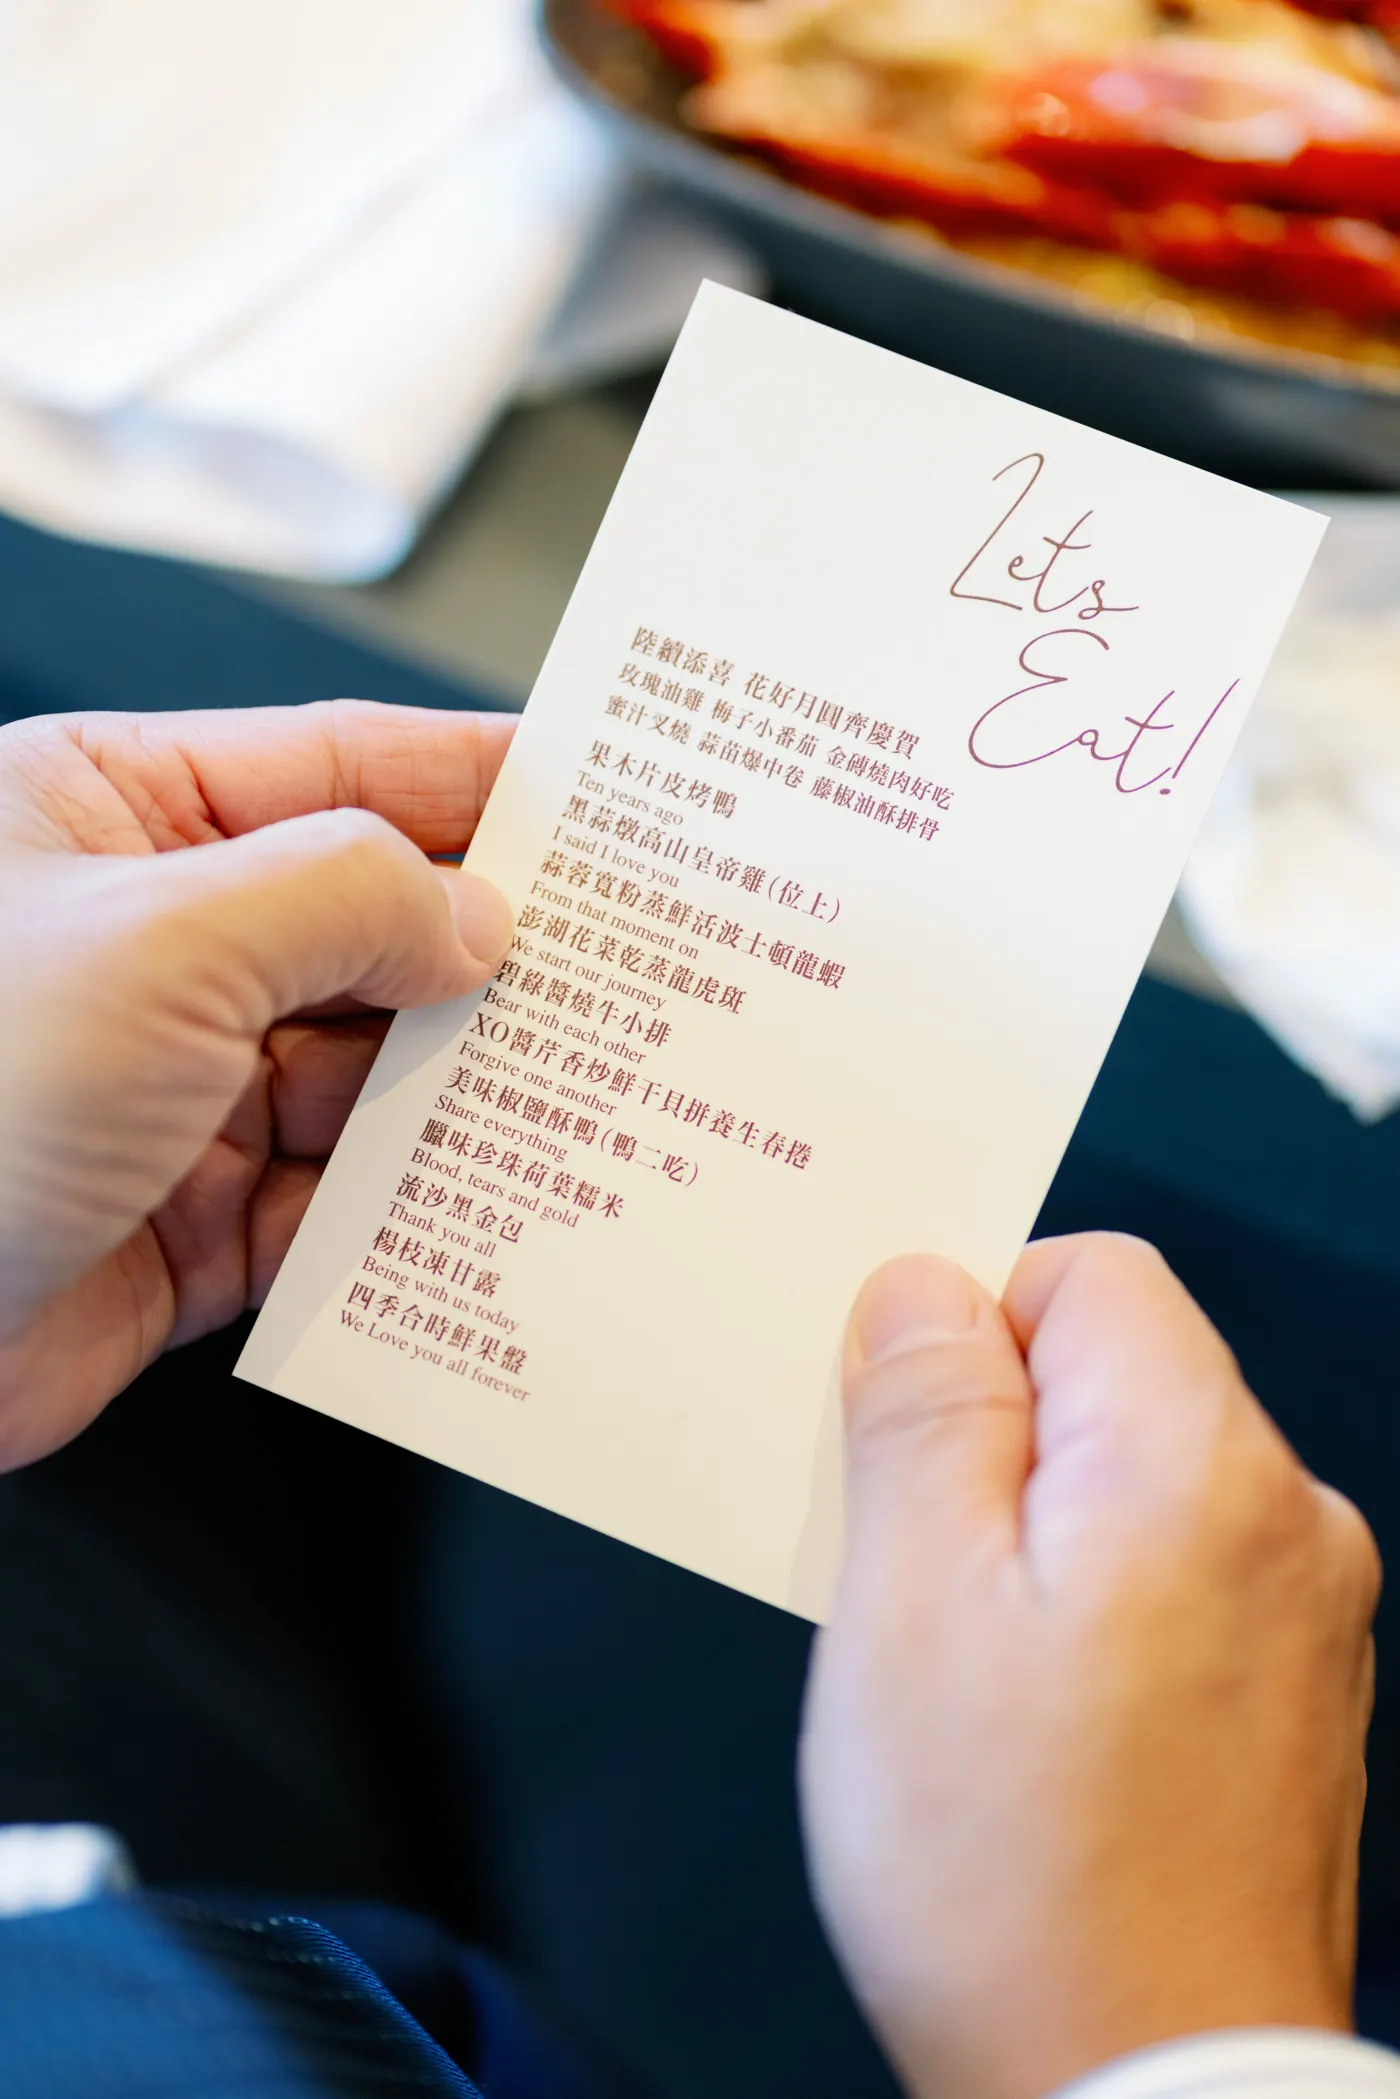 Lets
Eat!
陸續添喜 花好月圓齊慶賀
玫瑰油雞 梅子小番茄 金磚燒肉好吃
蜜汁叉燒 蒜苗爆中卷 藤椒油酥排骨
果木片皮烤鴨
Ten years ago
黑蒜燉高山皇帝雞(位上)
I said I love you
蒜蓉寬粉蒸鮮活波士頓龍蝦
From that moment on
澎湖花菜乾蒸龍虎斑
We start our journey
碧綠醬燒牛小排
Bear with each other
XO醬芹香炒鮮干貝拼養生春捲
Forgive one another
美味椒鹽酥鴨(鴨二吃)
Share everything
臘味珍珠荷葉糯米
Blood, tears and gold
流沙黑金包
Thank you all
楊枝凍甘露
Being with us today
四季合時鮮果盤
We Love you all forever